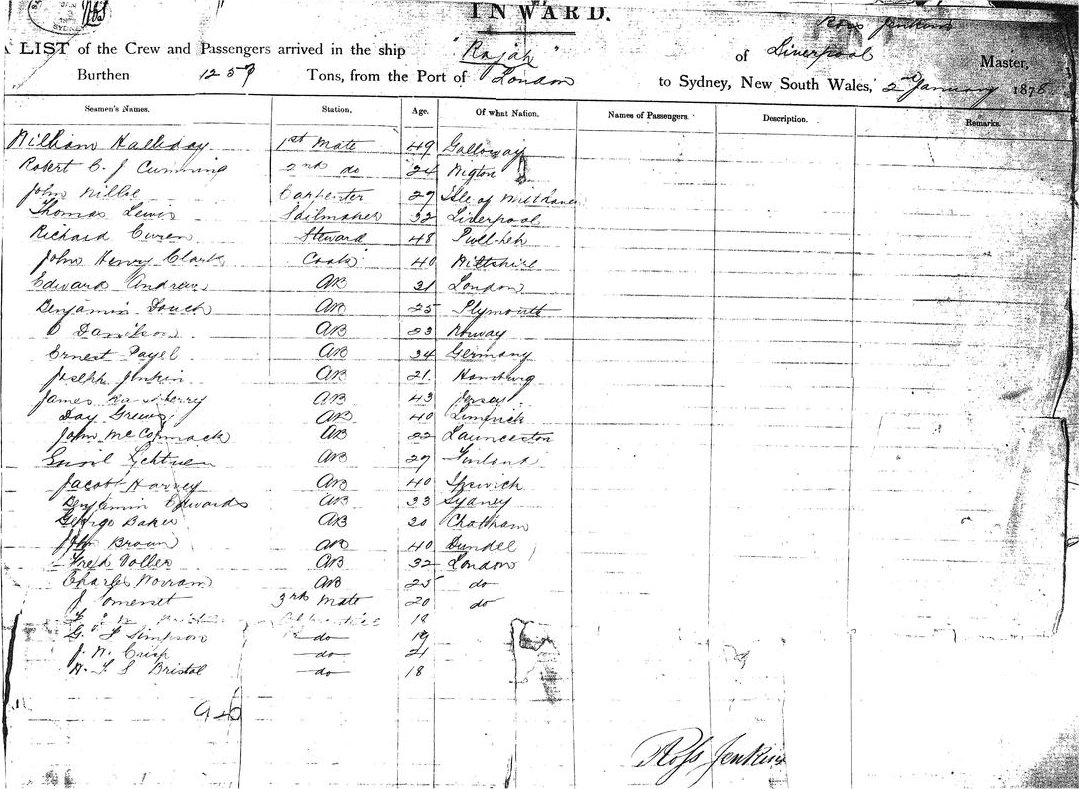 INWARD.
Ross Jenkins
A LIST of the Crew and Passengers arrived in the ship "Rajah" of Liverpool Master,
Burthen 1257 Tons, from the Port of London to Sydney, New South Wales, 2nd January 187
Seamen's Names. Station. Age. Of what Nation. Names of Passengers. Description. Remarks.
William Halliday 1st Mate 49 Galloway
Robert C. J Cumming 2nd do 24 Wigton
John Carpenter 27 Isle of
Thomas Lewis Sailmaker 32 Liverpool
Richard Curen Steward 48 Pwllheli
John Henry Clark Cook 40 Wiltshire
Edward Andrew AB 21 London
Benjamin Couch AB 25 Plymouth
O Danilson AB 23 Norway
Ernest Payel AB 34 Germany
Joseph Jenkin AB 21 Hamburg
James AB 43 Jersey
Day Grews AB 40 Limerick
John McCormack AB 22 Launceston
AB 27 Finland
Jacob Harvey AB 40 Ipswich
Benjamin Edwards AB 33 Sydney
George Baker AB 20 Chatham
John Brown AB 40 Dundee
Fred Voller AB 32 London
Charles Worram AB 25 do
J Somerset 3rd Mate 20 do
Apprentice 18
G. F Simpson do 19
J. W. Crisp do 21
W. F S Bristol do 18
Ross Jenkins